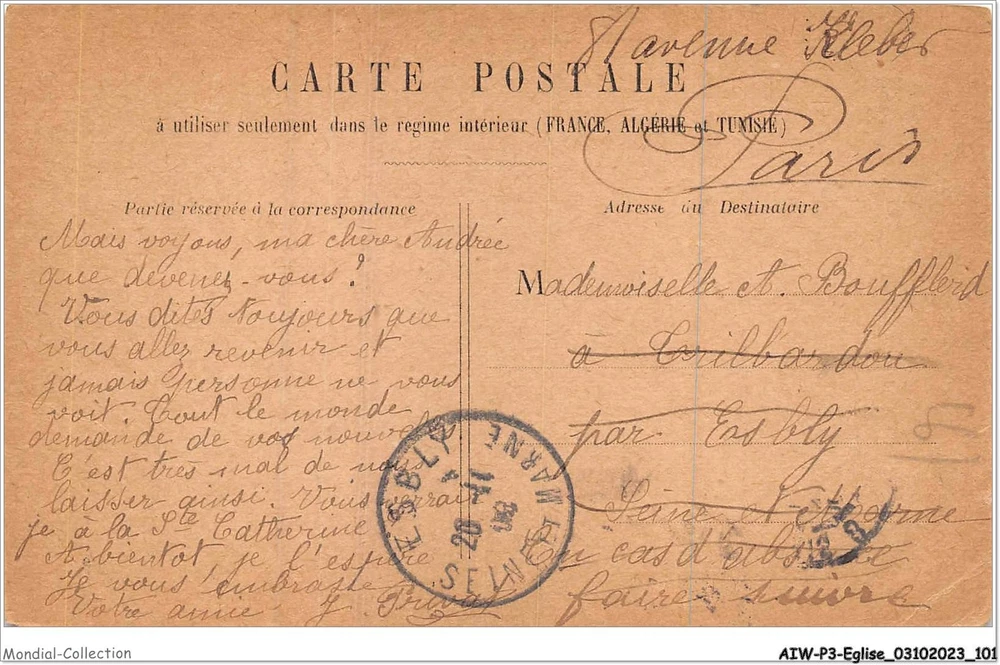 81 avenue Kleber
Paris
CARTE POSTALE
à utiliser seulement dans le regime intérieur (FRANCE, ALGÉRIE et TUNISIE)
Partie réservée à la correspondance
Mais voyons, ma chère Andrée
que devenez-vous ?
Vous dites toujours que
vous allez revenir et
jamais personne ne vous
voit. Tout le monde
demande de vos nouvelles
C'est tres mal de nous
laisser ainsi. Vous verrai
je à la Ste Catherine
A bientot je l'espère
Je vous embrasse
Votre amie J.
Adresse du Destinataire
Mademoiselle A. Boufflerd
à Trilbardou
par Esbly
Seine et Marne
En cas d'absence
faire suivre
ESBLY
SEINE ET MARNE
20
Mondial-Collection
AIW-P3-Eglise_03102023_101